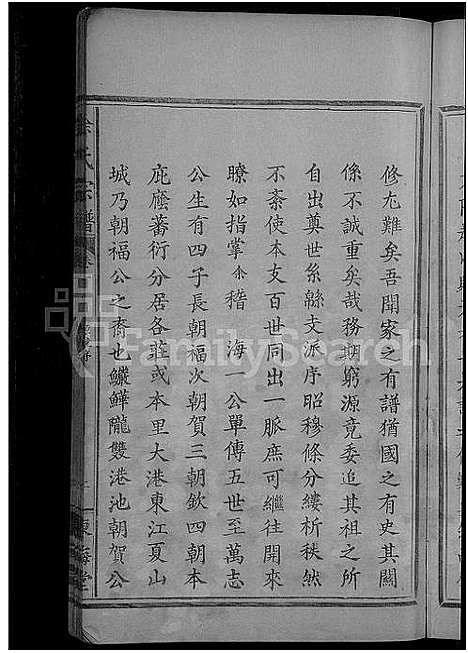 修尤難矣吾聞家之有譜猶國之有史其關
係不誠重矣哉務期窮源竟委追其祖之所
自出奠世系緜支派序昭穆條分縷析秩然
不紊使本支百世同出一脈庶可繼往開來
瞭如指掌余稽 海一公單傳五世至萬志
公生有四子長朝福次朝賀三朝欽四朝本
庇廕蕃衍分居各莊或本里大港東江夏山
城乃朝福公之裔也鱖鱓隴雙港池朝賀公
徐氏宗譜
東海堂
FamilySearch